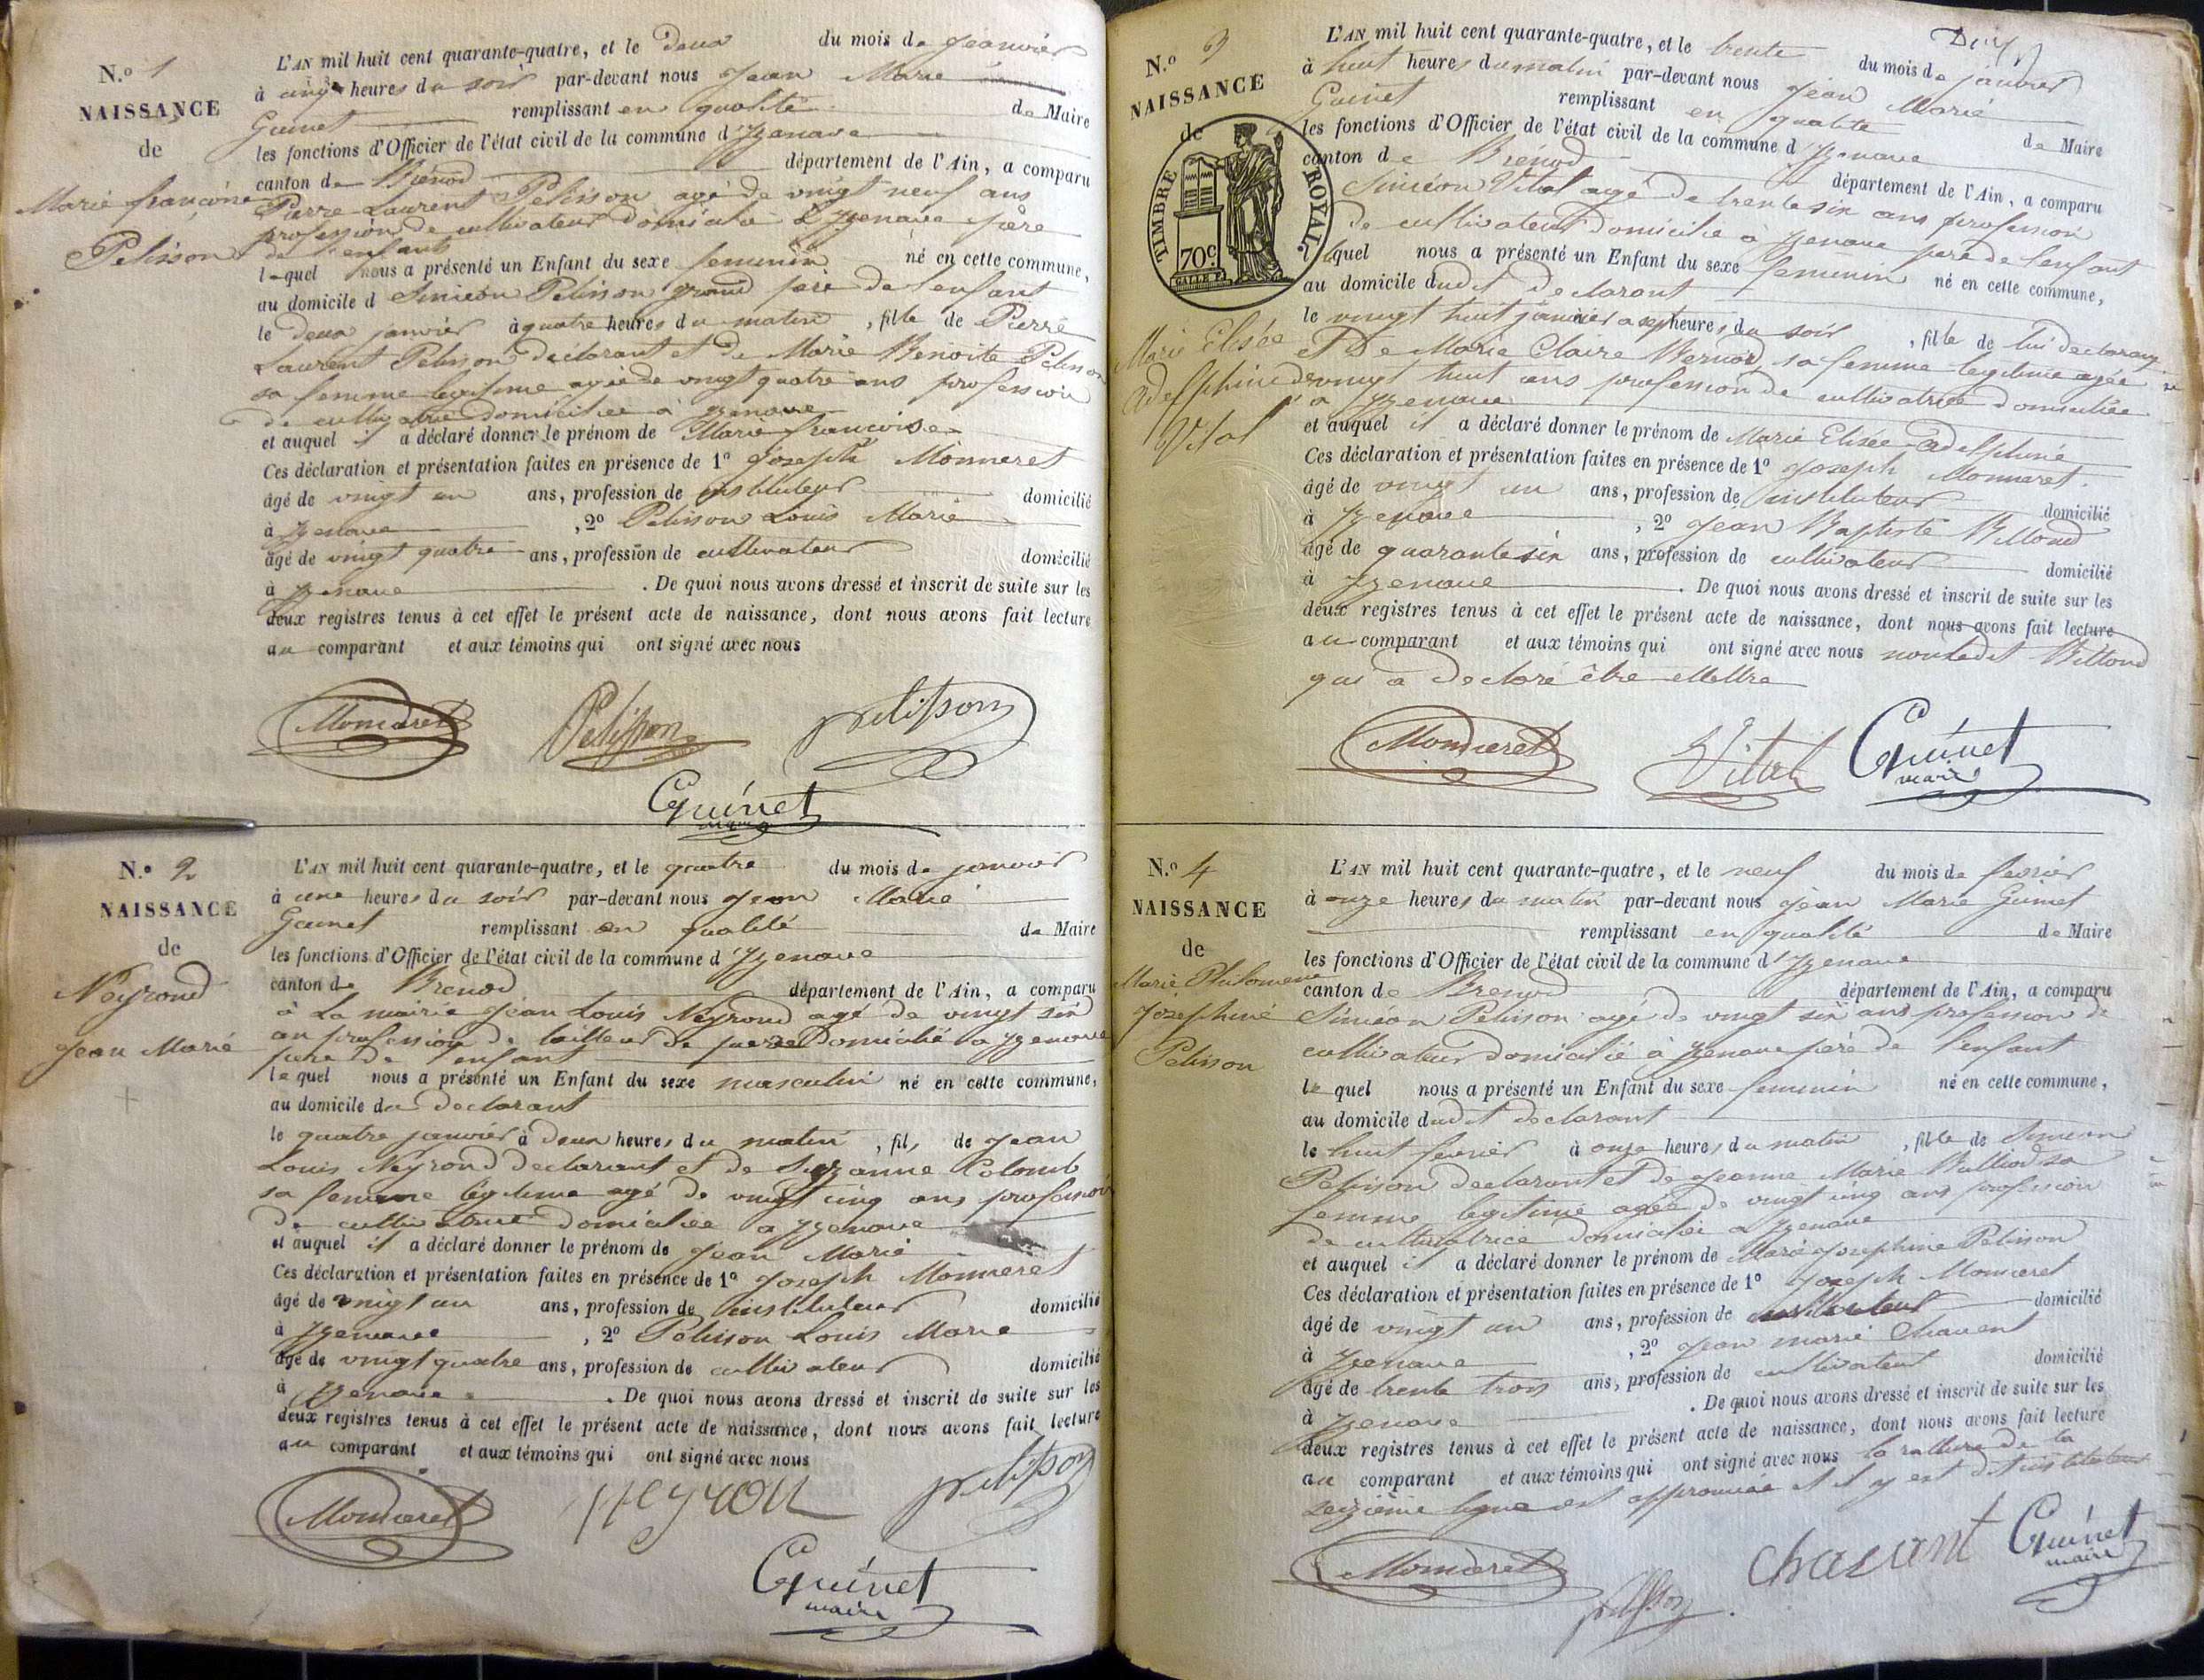 N.º 1
NAISSANCE
de
Marie françoise
Pelisson
L'AN mil huit cent quarante-quatre, et le deux du mois de Jeanvier
à cinq heures du soir par-devant nous Jean Marie
Guinet remplissant en qualité de Maire
les fonctions d'Officier de l'état civil de la commune d'Izenave
canton de Brénod département de l'Ain, a comparu
Pierre Laurent Pelisson agé de vingt neuf ans
profession de cultivateur domicilié à Izenave père
de l'enfant
lequel nous a présenté un Enfant du sexe feminin né en cette commune,
au domicile d Siméon Pelisson grand père de l'enfant
le deux janvier à quatre heures du matin, fille de Pierre
Laurent Pelisson déclarant et de Marie Benoite Pelisson
sa femme legitime agée de vingt quatre ans profession
de cultivatrice domiciliée à Izenave
et auquel il a déclaré donner le prénom de Marie françoise
Ces déclaration et présentation faites en présence de 1º Joseph Monneret
âgé de vingt un ans, profession de instituteur domicilié
à Izenave, 2º Pelisson Louis Marie
âgé de vingt quatre ans, profession de cultivateur domicilié
à Izenave. De quoi nous avons dressé et inscrit de suite sur les
deux registres tenus à cet effet le présent acte de naissance, dont nous avons fait lecture
au comparant et aux témoins qui ont signé avec nous
Monneret Pelisson Pelisson
Guinet
maire
N.º 2
NAISSANCE
de
Neyroud
Jean Marie
L'AN mil huit cent quarante-quatre, et le quatre du mois de janvier
à une heures du soir par-devant nous Jean Marie
Guinet remplissant en qualité de Maire
les fonctions d'Officier de l'état civil de la commune d'Izenave
canton de Brénod département de l'Ain, a comparu
à La mairie Jean Louis Neyroud agé de vingt six
an profession de tailleur de pierre domicilié a Izenave
père de l'enfant
lequel nous a présenté un Enfant du sexe masculin né en cette commune,
au domicile du declarant
le quatre janvier à deux heures du matin, fils de Jean
Louis Neyroud declarant et de Suzanne Colomb
sa femme légitime agé de vingt cinq ans profession
de cultivatrice domiciliée a Izenave
et auquel il a déclaré donner le prénom de Jean Marie
Ces déclaration et présentation faites en présence de 1º Joseph Monneret
âgé de vingt un ans, profession de instituteur domicilié
à Izenave, 2º Pelisson Louis Marie
âgé de vingt quatre ans, profession de cultivateur domicilié
à Izenave. De quoi nous avons dressé et inscrit de suite sur les
deux registres tenus à cet effet le présent acte de naissance, dont nous avons fait lecture
au comparant et aux témoins qui ont signé avec nous
Monneret Neyrou Pelisson
Guinet
maire
N.º 3
NAISSANCE
de
TIMBRE ROYAL.
70c.
Marie Elisée
adelphine
Vital
L'AN mil huit cent quarante-quatre, et le trente du mois de janvier
à huit heures du matin par-devant nous Jean Marie
Guinet remplissant en qualité de Maire
les fonctions d'Officier de l'état civil de la commune d'Izenave
canton de Brénod département de l'Ain, a comparu
Siméon Vital agé de trente six ans profession
de cultivateur domicilié à Izenave père de l'enfant
lequel nous a présenté un Enfant du sexe feminin né en cette commune,
au domicile dudit declarant
le vingt huit janvier a sept heures du soir, fille de lui declarant
et De Marie Claire Bernod sa femme legitime agée
de vingt huit ans profession de cultivatrice domiciliée
a Izenave
et auquel il a déclaré donner le prénom de Marie Elisée adelphine
Ces déclaration et présentation faites en présence de 1º Joseph Monneret
âgé de vingt un ans, profession de instituteur domicilié
à Izenave, 2º Jean Baptiste Billoud
âgé de quarante six ans, profession de cultivateur domicilié
à Izenave. De quoi nous avons dressé et inscrit de suite sur les
deux registres tenus à cet effet le présent acte de naissance, dont nous avons fait lecture
au comparant et aux témoins qui ont signé avec nous non ledit Billoud
qui a déclaré être illettre
Monneret Vital Guinet
maire
N.º 4
NAISSANCE
de
Marie Philomene
Josephine
Pelisson
L'AN mil huit cent quarante-quatre, et le neuf du mois de fevrier
à onze heures du matin par-devant nous Jean Marie Guinet
remplissant en qualité de Maire
les fonctions d'Officier de l'état civil de la commune d'Izenave
canton de Brenod département de l'Ain, a comparu
Siméon Pelisson agé de vingt six ans profession de
cultivateur domicilié à Izenave père de l'enfant
lequel nous a présenté un Enfant du sexe feminin né en cette commune,
au domicile dudit declarant
le huit fevrier à onze heures du matin, fille de Simeon
Pelisson declarant et de Jeanne Marie Bulliod sa
femme legitime agée de vingt cinq ans profession
de cultivatrice domiciliée a Izenave
et auquel il a déclaré donner le prénom de Marie Josephine Pelisson
Ces déclaration et présentation faites en présence de 1º Joseph Monneret
âgé de vingt un ans, profession de instituteur domicilié
à Izenave, 2º Jean marie Chavent
âgé de trente trois ans, profession de cultivateur domicilié
à Izenave. De quoi nous avons dressé et inscrit de suite sur les
deux registres tenus à cet effet le présent acte de naissance, dont nous avons fait lecture
au comparant et aux témoins qui ont signé avec nous la rature de la
seizième ligne est approuvée et il y est dit instituteur
Monneret Pelisson chavant Guinet
maire